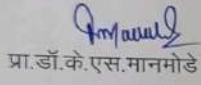 प्रा.डॉ.के.एस.मानमोडे